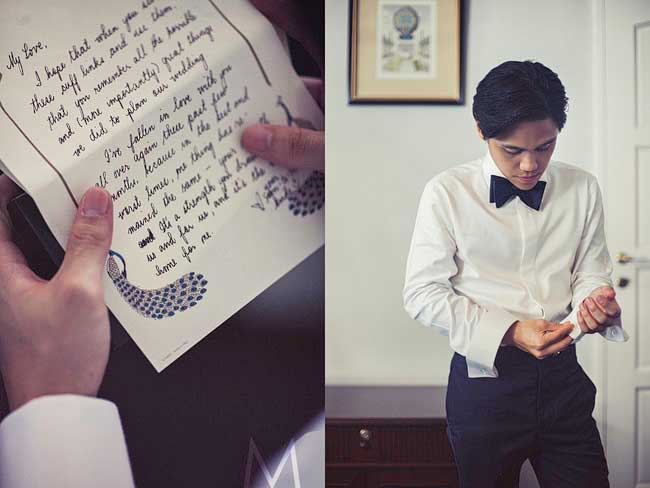 My Love,
I hope that when you see
these cuff links and use them.
that you remember all the horrible
and (more importantly) great things
we did to plan our wedding
I've fallen in love with you
all over again these past few
months, because in the best and
worst times, one thing has re-
mained the same - your
It's a strength and
us and for us, and it's the
home for me.
M